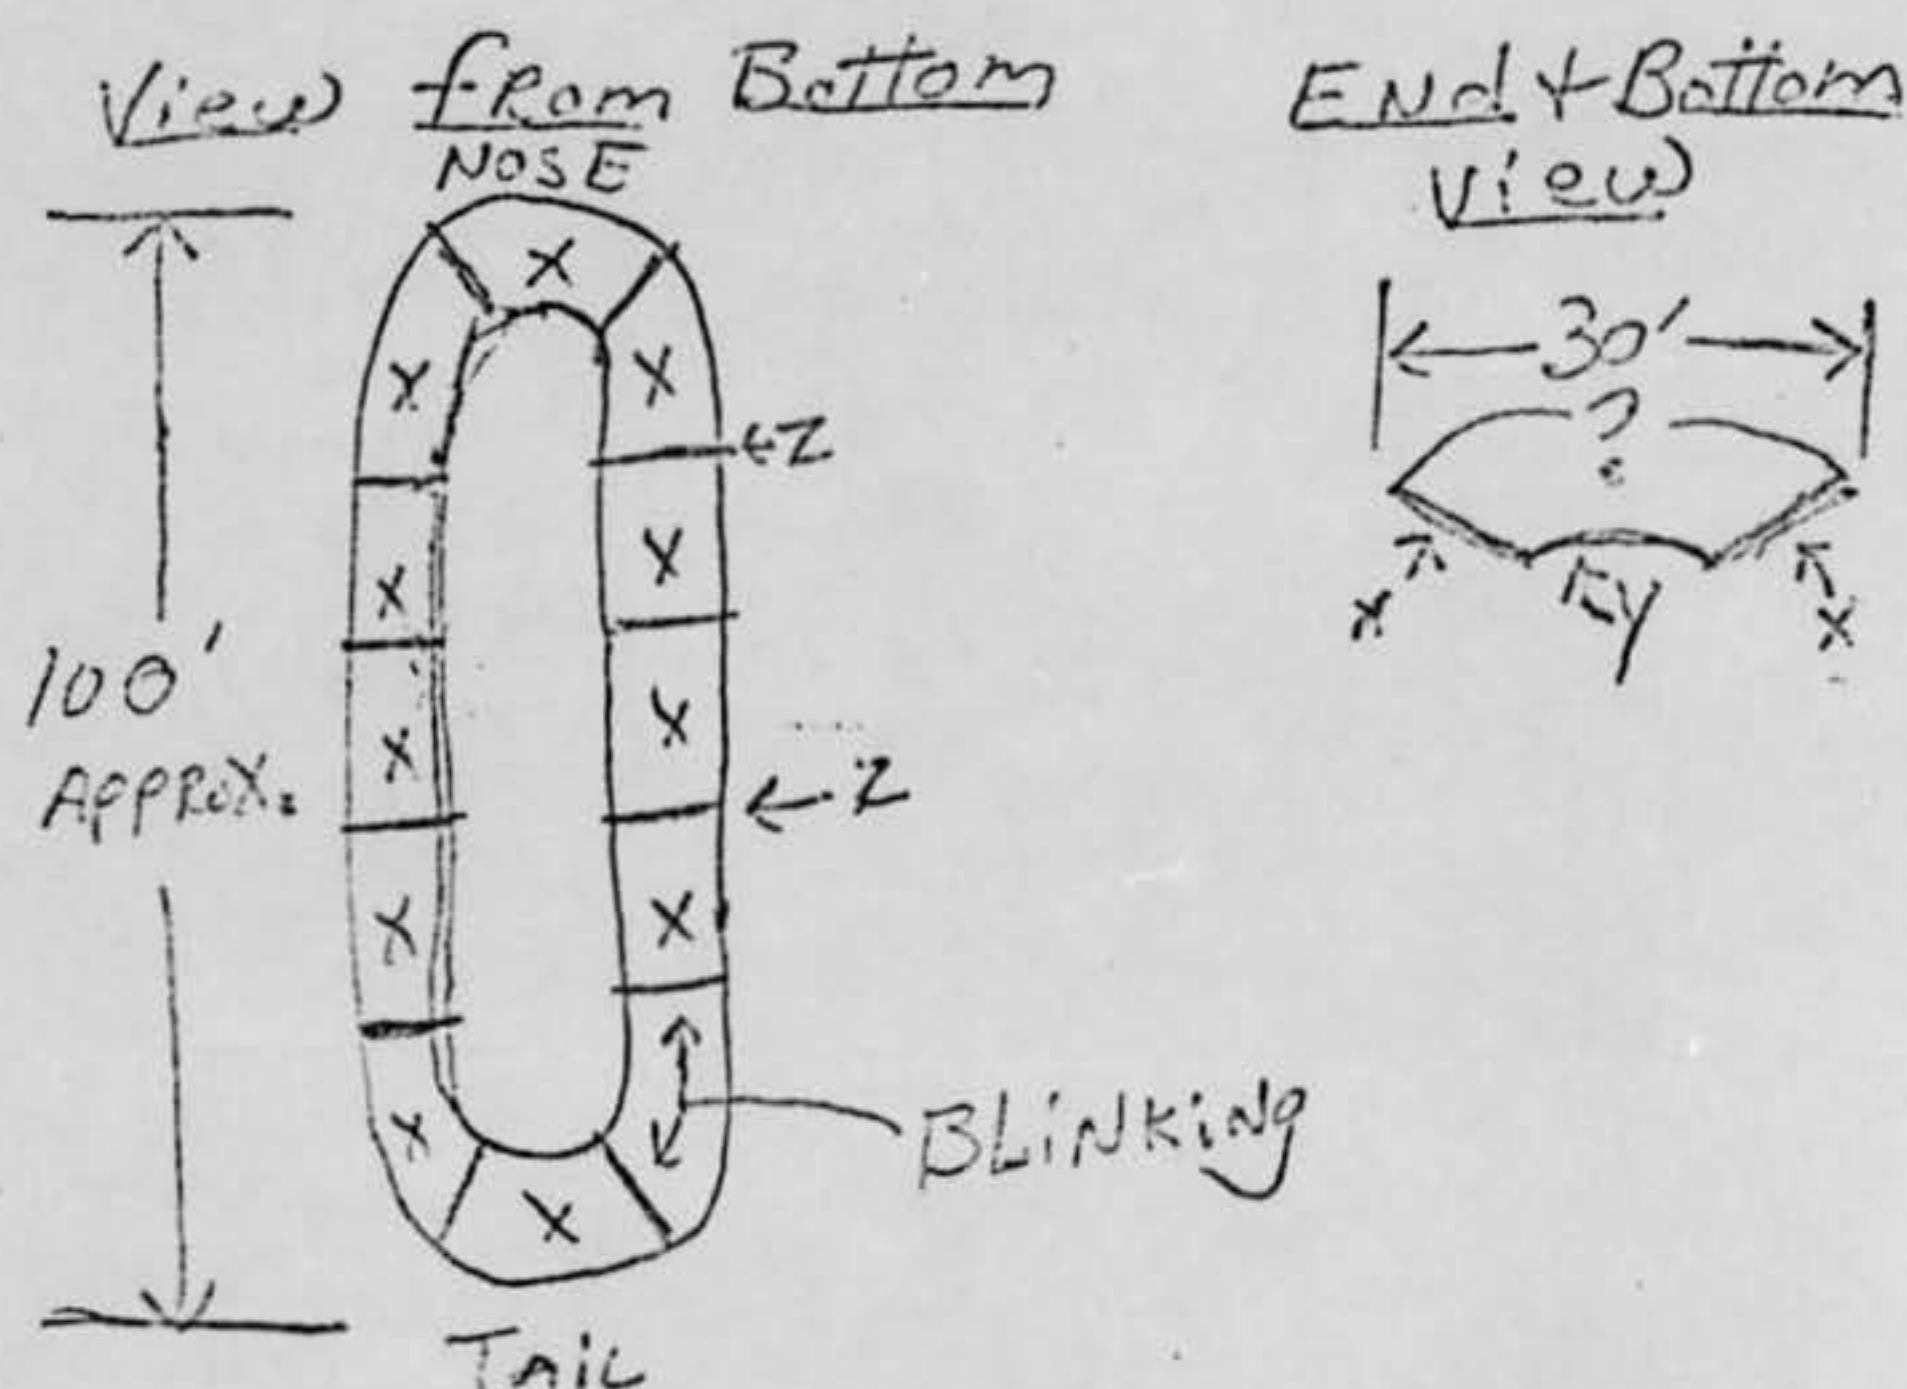 View from Bottom
NOSE
100'
APPROX.
X
X
X
X
X
X
X
X
X
X
X
←Z
←Z
BLiNKiNg
TAiL
ENd + Bottom
View
30'
?
X
Y
X